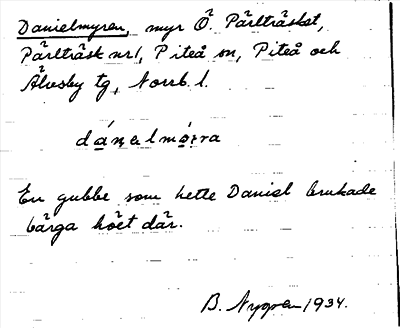 Danielmyren, myr Ö. Pärlträsket,
Pärlträsk nr1, Piteå sn, Piteå och
Älvsby tg, Norrb. l.
En gubbe som hette Daniel brukade
bärga höet där.
B. Nygren 1934.